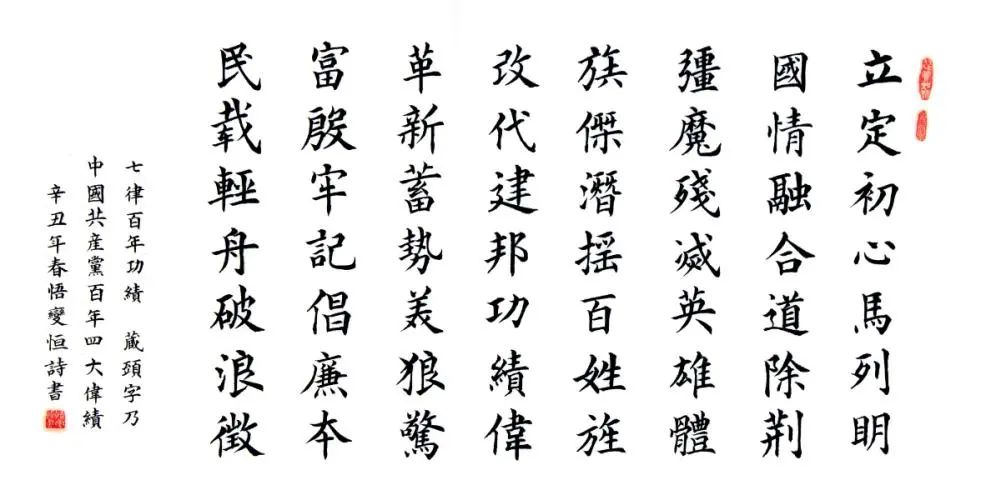 立定初心馬列明
國情融合道除荆
彊魔殘滅英雄體
族傑潛摇百姓旌
改代建邦功績偉
革新蓄勢羙狼驚
富殷牢記倡廉本
民載輕舟破浪徵
七律百年功績 藏頭字乃
中國共産黨百年四大偉績
辛丑年春悟變恒詩書